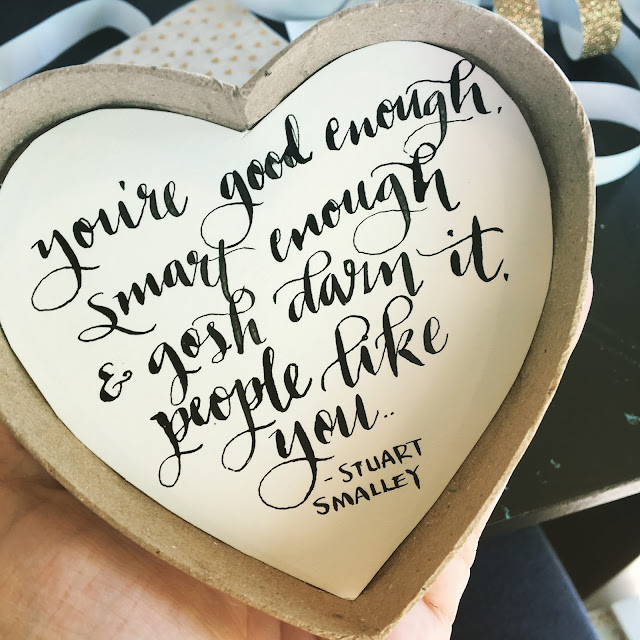 you're good enough,
smart enough
& gosh darn it,
people like
you..
- STUART
SMALLEY